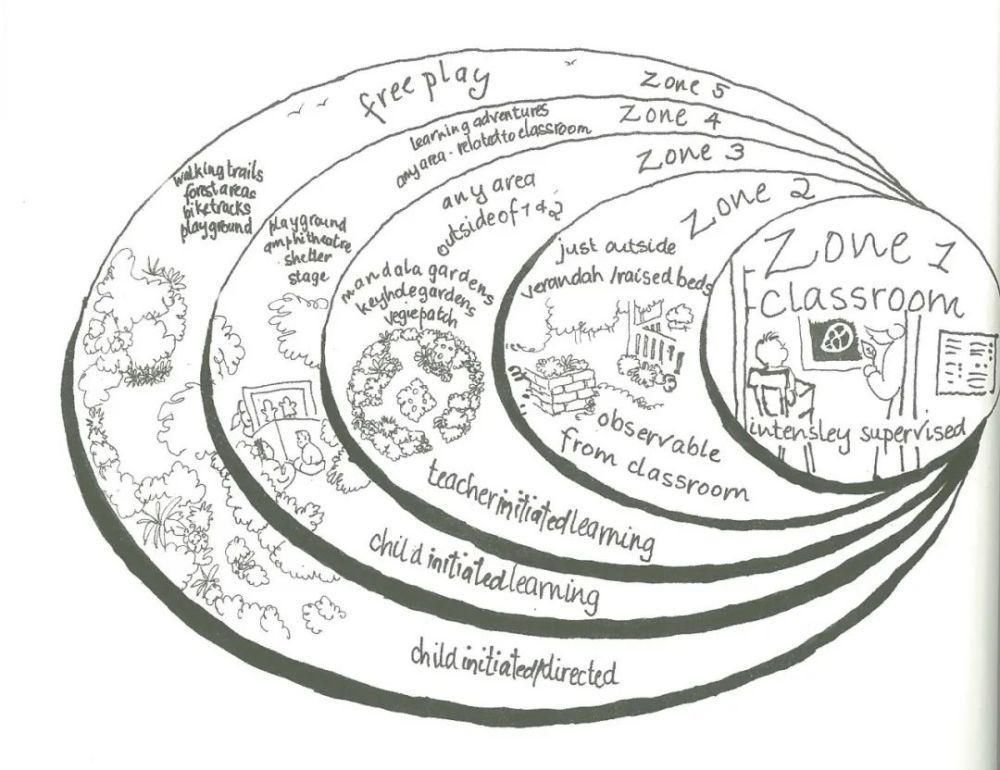 free play
Zone 5
walking trails
forest areas
bike tracks
playground
child initiated/directed
learning adventures
any area - related to classroom
Zone 4
playground
amphitheatre
shelter
stage
child initiated learning
Zone 3
any area
outside of 1 & 2
mandala gardens
keyhole gardens
vegie patch
teacher initiated learning
Zone 2
just outside
verandah / raised beds
observable
from classroom
Zone 1
classroom
intensley supervised